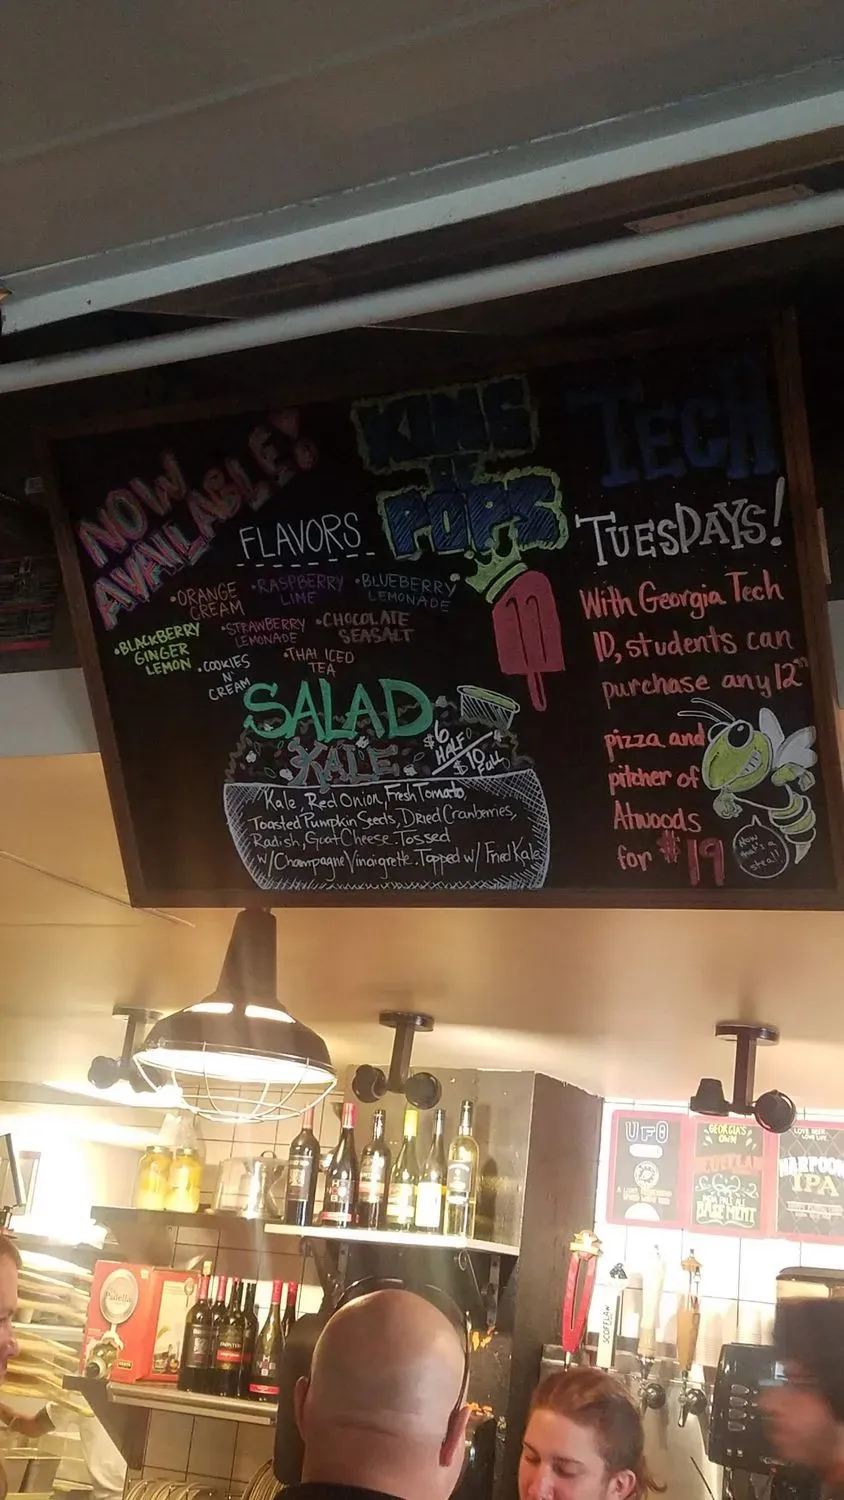 NOW
AVAILABLE!
KING
OF
POPS
FLAVORS
•ORANGE
CREAM
•RASPBERRY
LIME
•BLUEBERRY
LEMONADE
•BLACKBERRY
GINGER
LEMON
•STRAWBERRY
LEMONADE
•CHOCOLATE
SEASALT
•COOKIES
N'
CREAM
•THAI ICED
TEA
SALAD
KALE
$6
HALF
$10
FULL
Kale, Red Onion, Fresh Tomato
Toasted Pumpkin Seeds, Dried Cranberries,
Radish, Goat Cheese. Tossed
w/Champagne Vinaigrette. Topped w/ Fried Kale
TECH
TUESDAYS!
With Georgia Tech
ID, students can
purchase any 12"
pizza and
pitcher of
Atwoods
for $19
Now
that's a
steal!
UFO
GEORGIA'S
OWN
SCOFFLAW
BASEMENT
LOVE BEER.
LOVE LIFE.
HARPOON
IPA
Paella
SCOFFLAW